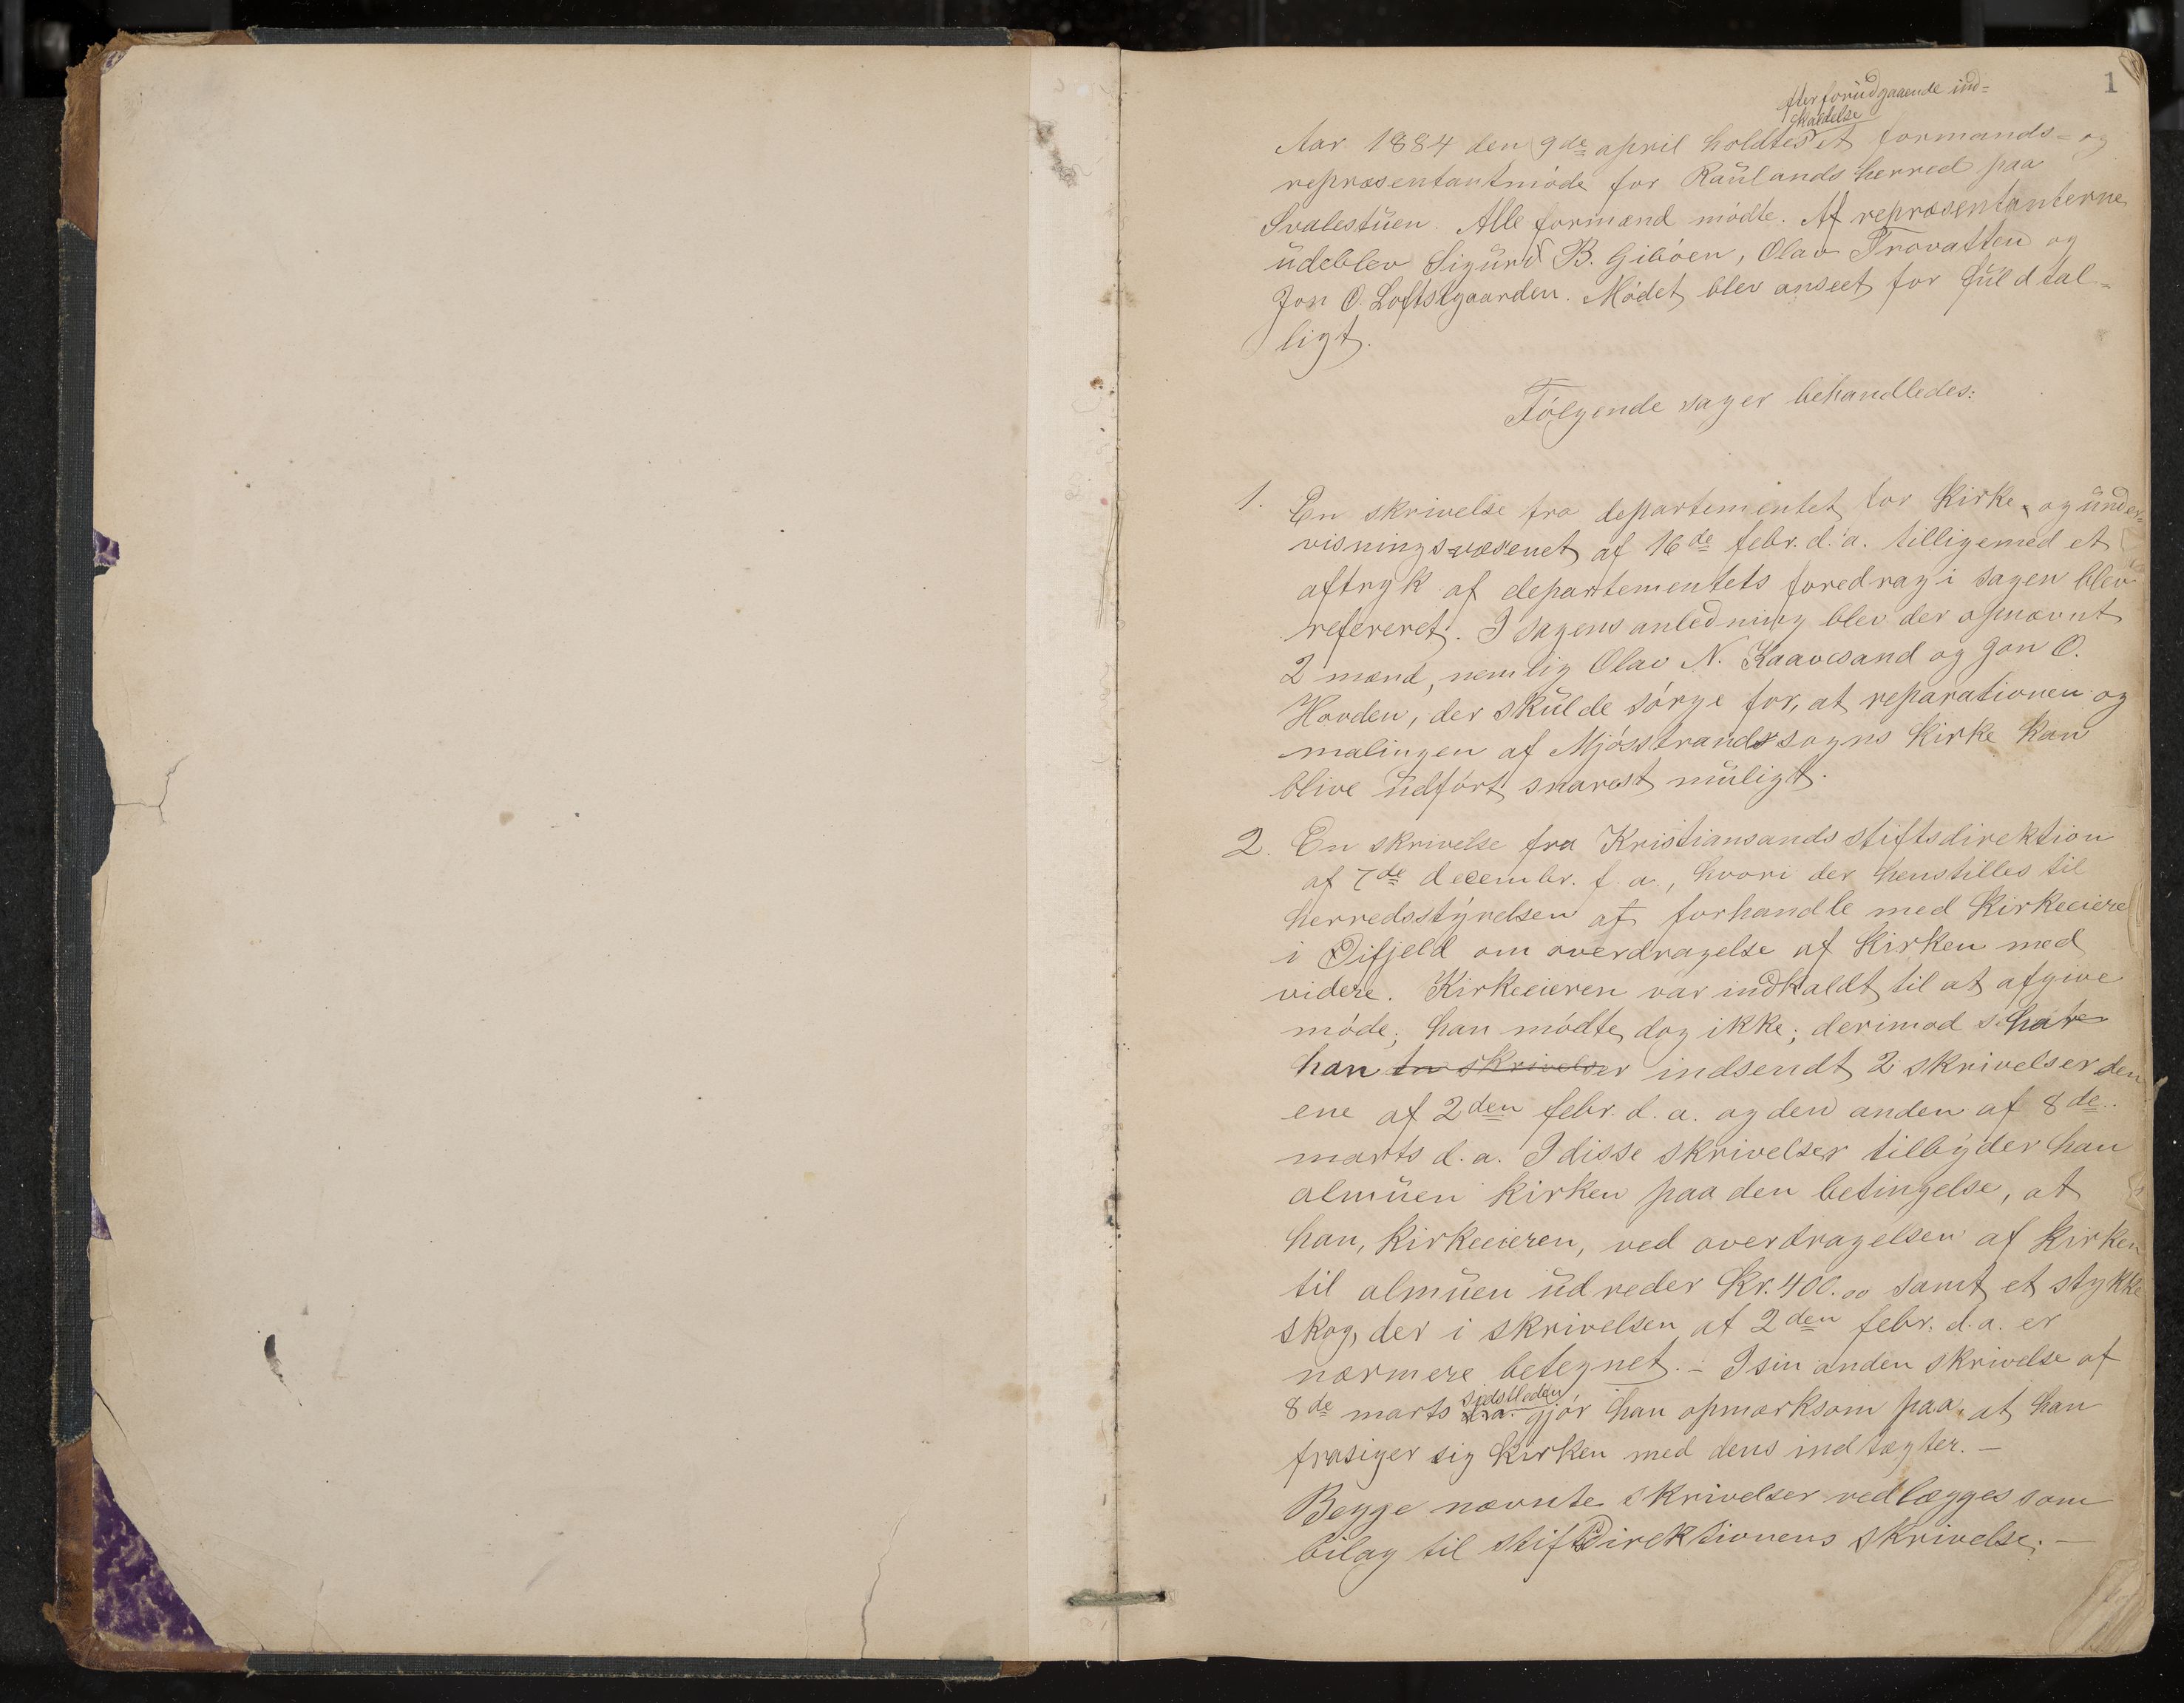 1
efter forudgaaende ind=
kaldelse
Aar 1884 den 9de april holdtes et formands- og
repræsentantmöde for Raulands herred paa
Svalestuen. Alle formænd mödte. Af repræsentanterne
udeblev Sigurd B. Giböen, Olav Trovatten og
Jon O. Loftsgaarden. Mödet blev anseet for fuldtal=
ligt.
Fölgende sager behandledes:
1. En skrivelse fra departementet for kirke- og under=
visningsvæsenet af 16de febr. d. a. tilligemed et
aftryk af departementets foredrag i sagen blev
refereret. I sagens anledning blev der opnævnt
2 mænd, nemlig Olav N. Kaavesand og Jon O.
Hovden, der skulde sörge for, at reparationen og
malingen af Mjösstrands sogns kirke kan
blive udfört snarest muligt.
2. En skrivelse fra Kristiansands stiftsdirektion
af 7de decembr. f. a., hvori der henstilles til
herredsstyrelsen at forhandle med kirkeeieren
i Öifjeld om overdragelse af kirken med
videre. Kirkeeieren var indkaldt til at afgive
möde; han mödte dog ikke; derimod har
han to skrivelser indsendt 2 skrivelser den
ene af 2den febr. d. a. og den anden af 8de
marts d. a. I disse skrivelser tilbyder han
almuen kirken paa den betingelse, at
han, kirkeeieren, ved overdragelsen af kirken
til almuen udreder kr. 400.00 samt et stykke
skog, der i skrivelsen af 2den febr. d. a. er
nærmere betegnet. - I sin anden skrivelse af
sidstleden
8de marts d. a. gjör han opmærksom paa, at han
frasiger sig kirken med dens indtægter. -
Begge nævnte skrivelser vedlægges som
bilag til stiftsdirektionens skrivelse. -